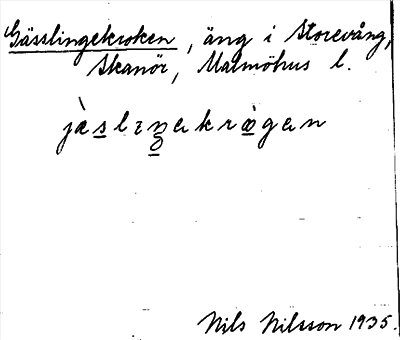 Gässlingekroken, äng i Storevång,
Skanör, Malmöhus l.
jàslɪŋekrògen
Nils Nilsson 1935.